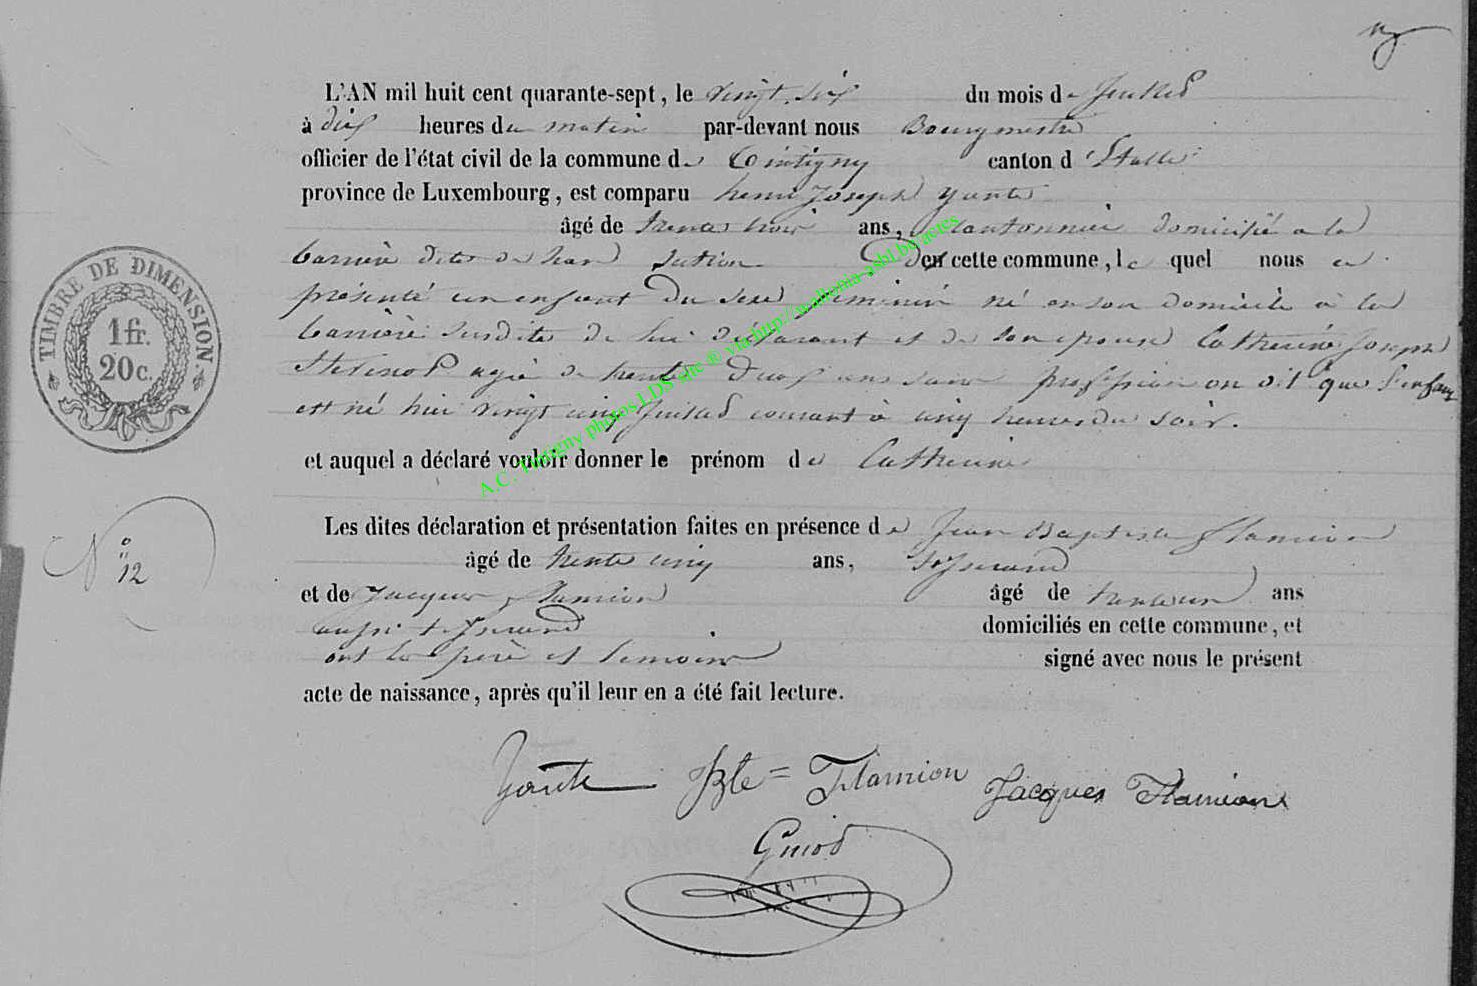 L'AN mil huit cent quarante-sept, le vingt six du mois de Juillet
à dix heures du matin par-devant nous Bourgmestre
officier de l'état civil de la commune de Tintigny canton d'Etalle
province de Luxembourg, est comparu henri Joseph Yante
âgé de trente trois ans, cantonnier domicilié a la
barrière dite de han Dt cette commune, le quel nous a
présenté un enfant du sexe feminin né en son domicile a la
barrière susdite de lui déclarant et de son epouse Catherine Joseph
agée de trente deux ans sans profession on dit que l'enfant
est né hier vingt cinq Juillet courant à cinq heures du soir.
et auquel a déclaré vouloir donner le prénom de Catherine
Les dites déclaration et présentation faites en présence de Jean Baptiste Flamion
âgé de trente cinq ans, tisserand
et de Jacques Flamion âgé de trente un ans
aussi tisserand domiciliés en cette commune, et
ont les père et temoins signé avec nous le présent
acte de naissance, après qu'il leur en a été fait lecture.
Yante JBte = Flamion Jacques Flamion
Guiot
TIMBRE DE DIMENSION
1 fr.
20 c.
No 12
A.C. Tintigny photos LDS site ® via http://wallonia-asbl.be/actes